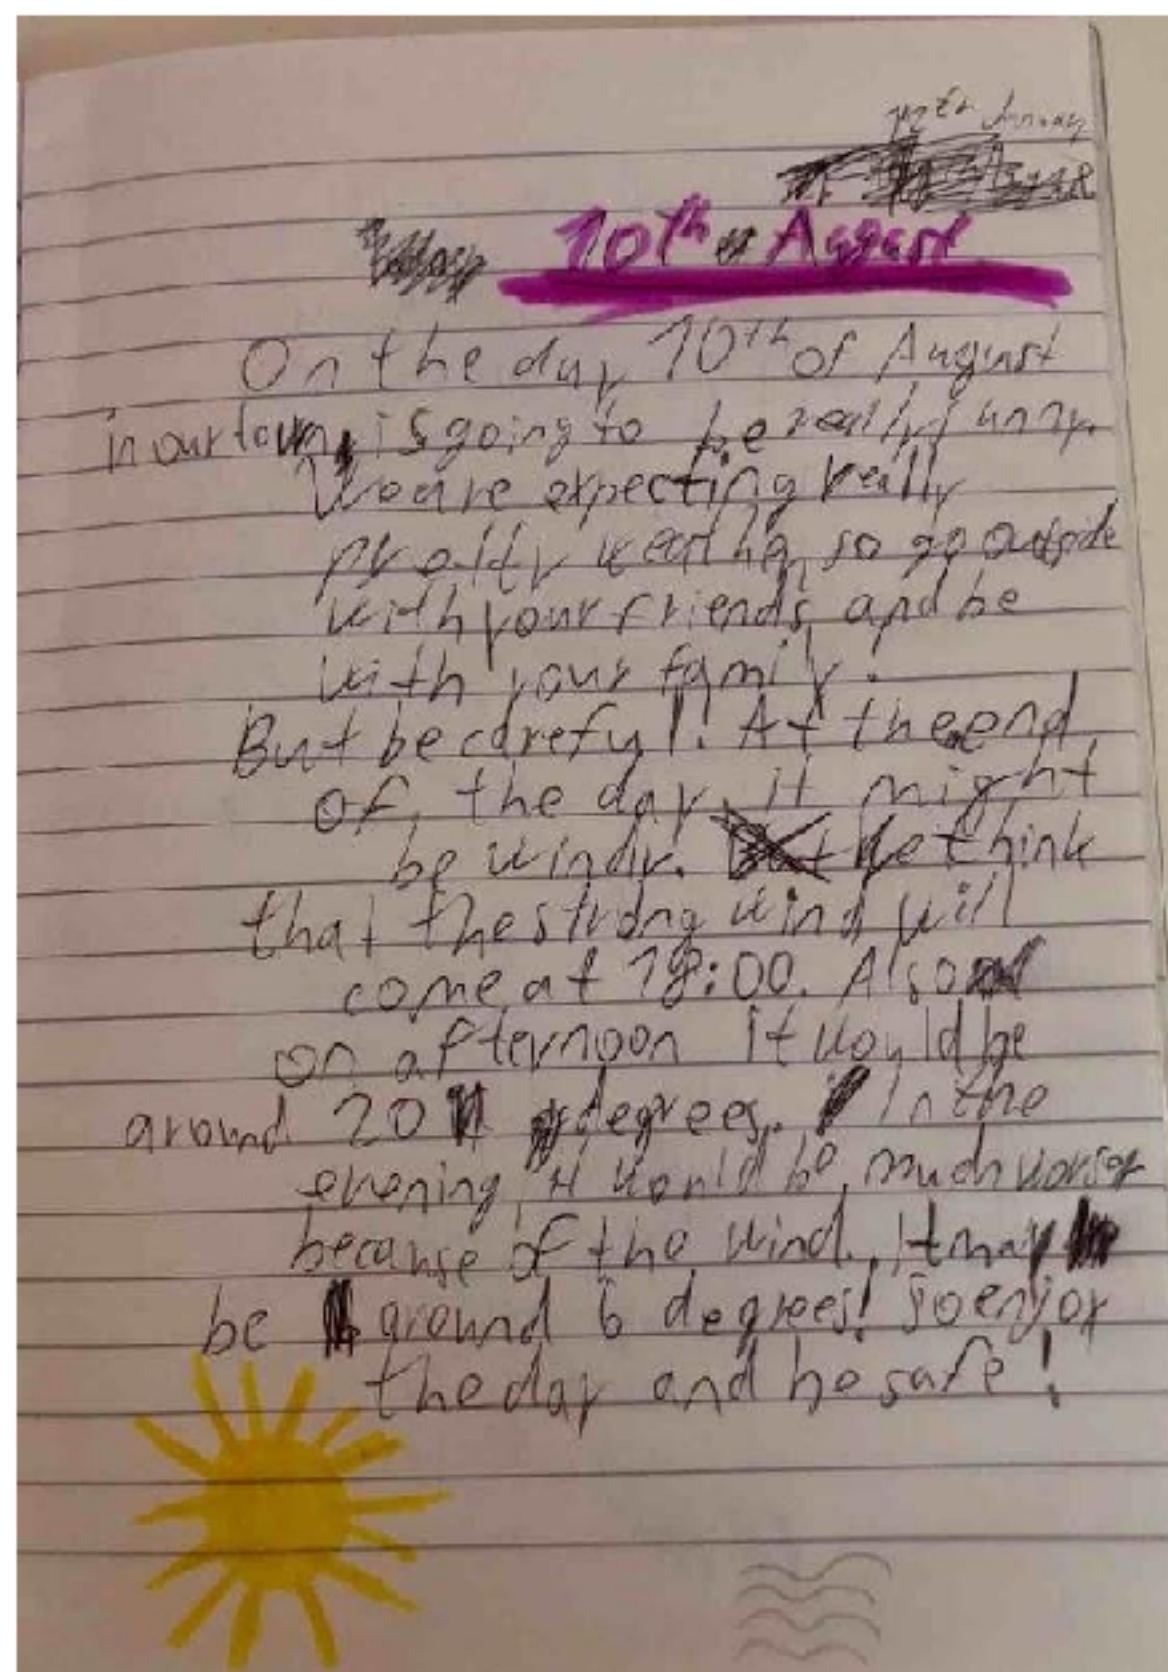 10th August
On the day 10th of August
in our town, is going to be really sunny.
We are expecting really
pretty weather, so go outside
with your friends, and be
with your family.
But be careful! At the end
of, the day, it might
be windy. We think
that the strong wind will
come at 18:00. Also
on afternoon it would be
around 20 degrees. In the
evening, it would be much worser
because of the wind. It may
be around 6 degrees! So enjoy
the day and be safe!